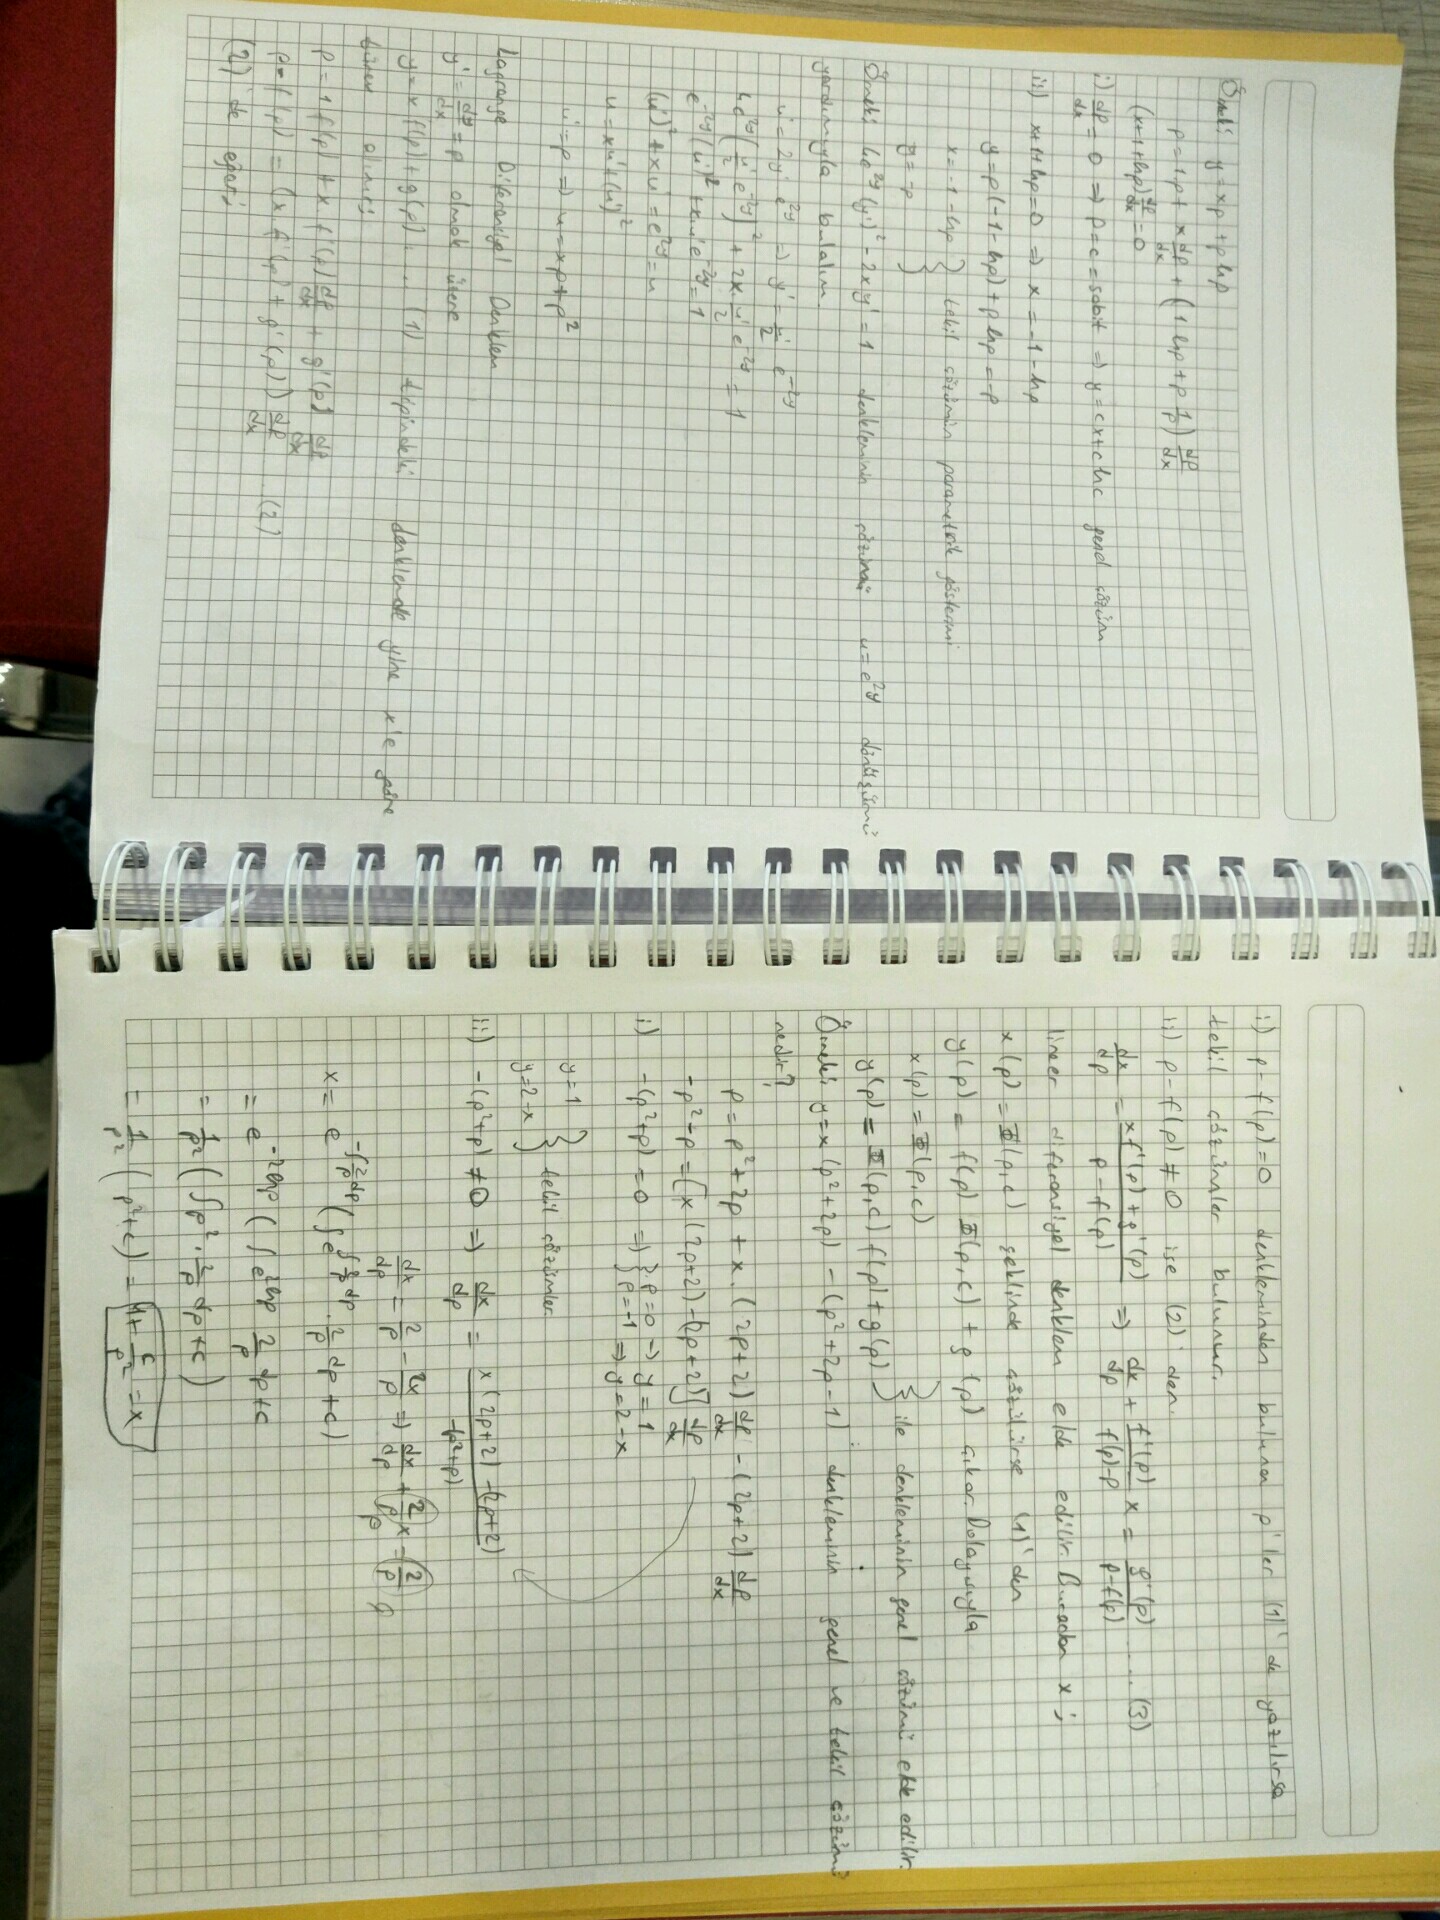 Örnek: y = xp + p lnp
p = 1.p + x dp/dx + (1 lnp + p 1/p) dp/dx
(x+1+lnp) dp/dx = 0
i) dp/dx = 0 ⇒ p = c = sabit ⇒ y = cx + c lnc genel çözüm
ii) x+1+lnp = 0 ⇒ x = -1 - lnp
y = p(-1-lnp) + p lnp = -p
x = -1 - lnp } tekil çözümün parametrik gösterimi
y = -p
Örnek: 4e^2y (y')^2 - 2xy' = 1 denkleminin çözümünü u = e^2y dönüşümü
yardımıyla bulalım.
u' = 2y' e^2y ⇒ y' = u'/2 e^-2y
4e^2y (u'/2 e^-2y)^2 + 2x. u'/2 e^-2y = 1
e^-2y (u')^2 + xu' e^-2y = 1
(u')^2 + xu' = e^2y = u
u = xu' + (u')^2
u' = p ⇒ u = xp + p^2
Lagrange Diferensiyel Denklem
y' = dy/dx = p olmak üzere
y = x f(p) + g(p) .... (1) tipindeki denklemde yine x'e göre
türev alınırsa
p = 1 f(p) + x. f'(p) dp/dx + g'(p) dp/dx
p - f(p) = (x. f'(p) + g'(p)) dp/dx ..(2)
(2) de eğer;
i) p - f(p) = 0 denkleminden bulunan p'ler (1)'de yazılırsa
tekil çözümler bulunur.
ii) p - f(p) ≠ 0 ise (2)'den.
dx/dp = (x f'(p) + g'(p))/(p - f(p)) ⇒ dx/dp + f'(p)/(f(p)-p) x = g'(p)/(p-f(p)) .... (3)
lineer diferensiyel denklem elde edilir. Buradan x;
x(p) = Φ(p,c) şeklinde çözülürse (1)'den
y(p) = f(p) Φ(p,c) + g(p) çıkar. Dolayısıyla
x(p) = Φ(p,c)
} ile denkleminin genel çözümü elde edilir.
y(p) = Φ(p,c) f(p) + g(p)
Örnek: y = x (p^2 + 2p) - (p^2 + 2p - 1) denkleminin genel ve tekil çözümü
nedir?
p = p^2 + 2p + x. (2p+2) dp/dx - (2p+2) dp/dx
-p^2 - p = [x (2p+2) - (2p+2)] dp/dx
i) -(p^2+p) = 0 ⇒ } p = 0 → y = 1
p = -1 ⇒ y = 2 - x
y = 1
} tekil çözümler
y = 2 - x
ii) -(p^2+p) ≠ 0 ⇒ dx/dp = (x (2p+2) - (2p+2))/(-(p^2+p))
dx/dp = 2/p - 2x/p ⇒ dx/dp + 2/p x = 2/p
x = e^-∫2/p dp (∫e^∫2/p dp . 2/p dp + c)
= e^-2lnp (∫e^2lnp 2/p dp + c
= 1/p^2 (∫p^2 . 2/p dp + c)
= 1/p^2 (p^2 + c) = 1 + c/p^2 = x